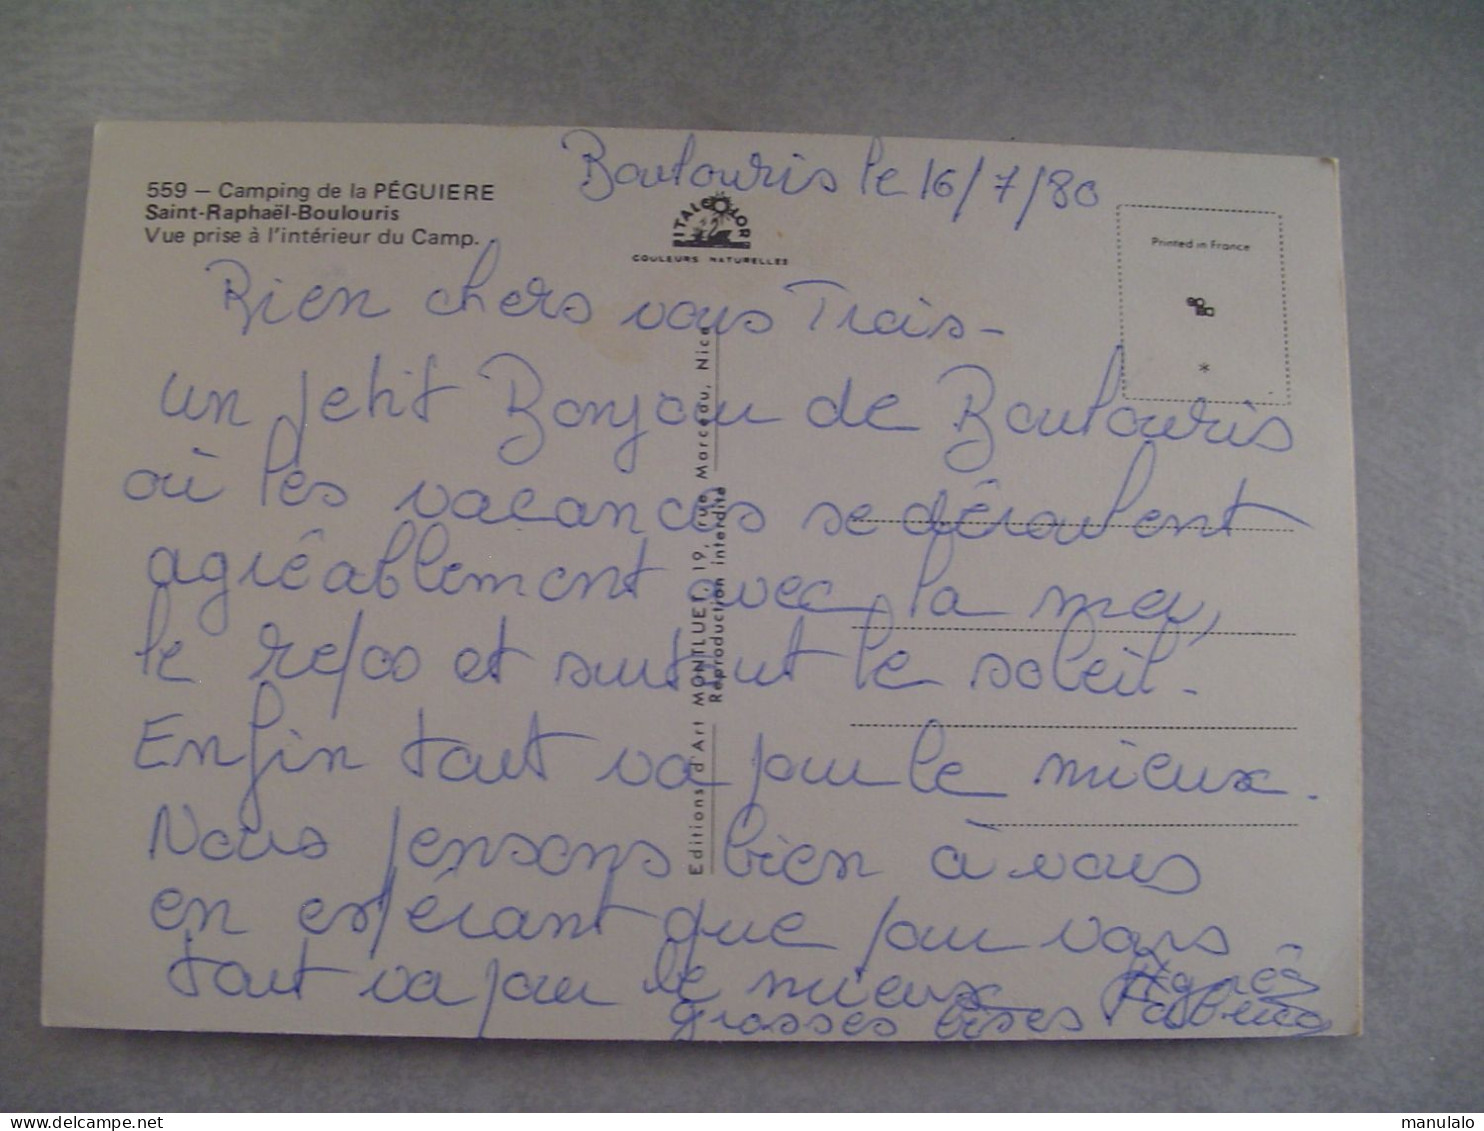 Boulouris le 16/7/80
559 – Camping de la PÉGUIERE
Saint-Raphaël-Boulouris
Vue prise à l'intérieur du Camp.
ITALCOLOR
COULEURS NATURELLES
Printed in France
*
Bien chers vous Trois -
un petit Bonjour de Boulouris
où les vacances se déroulent
agréablement avec la mer,
le repos et surtout le soleil -
Enfin tout va pour le mieux.
Nous pensons bien à vous
en espérant que pour vous
tout va pour le mieux
grosses bises Agnès
Editions d'Art MONTLUET, 19, rue Marceau, Nice
Reproduction interdite
www.delcampe.net
manulalo